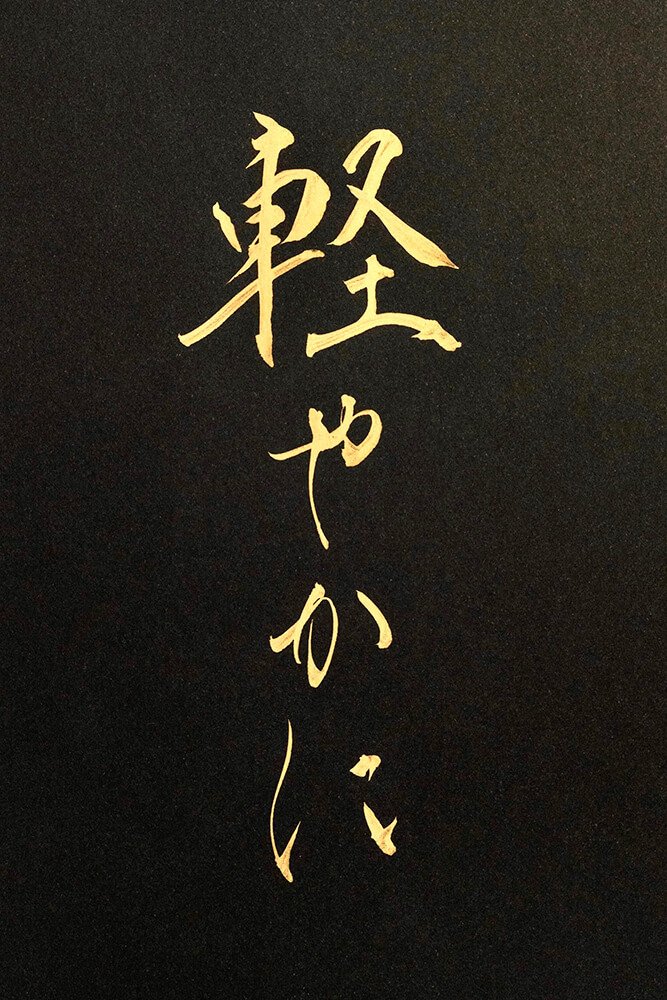 軽やかに